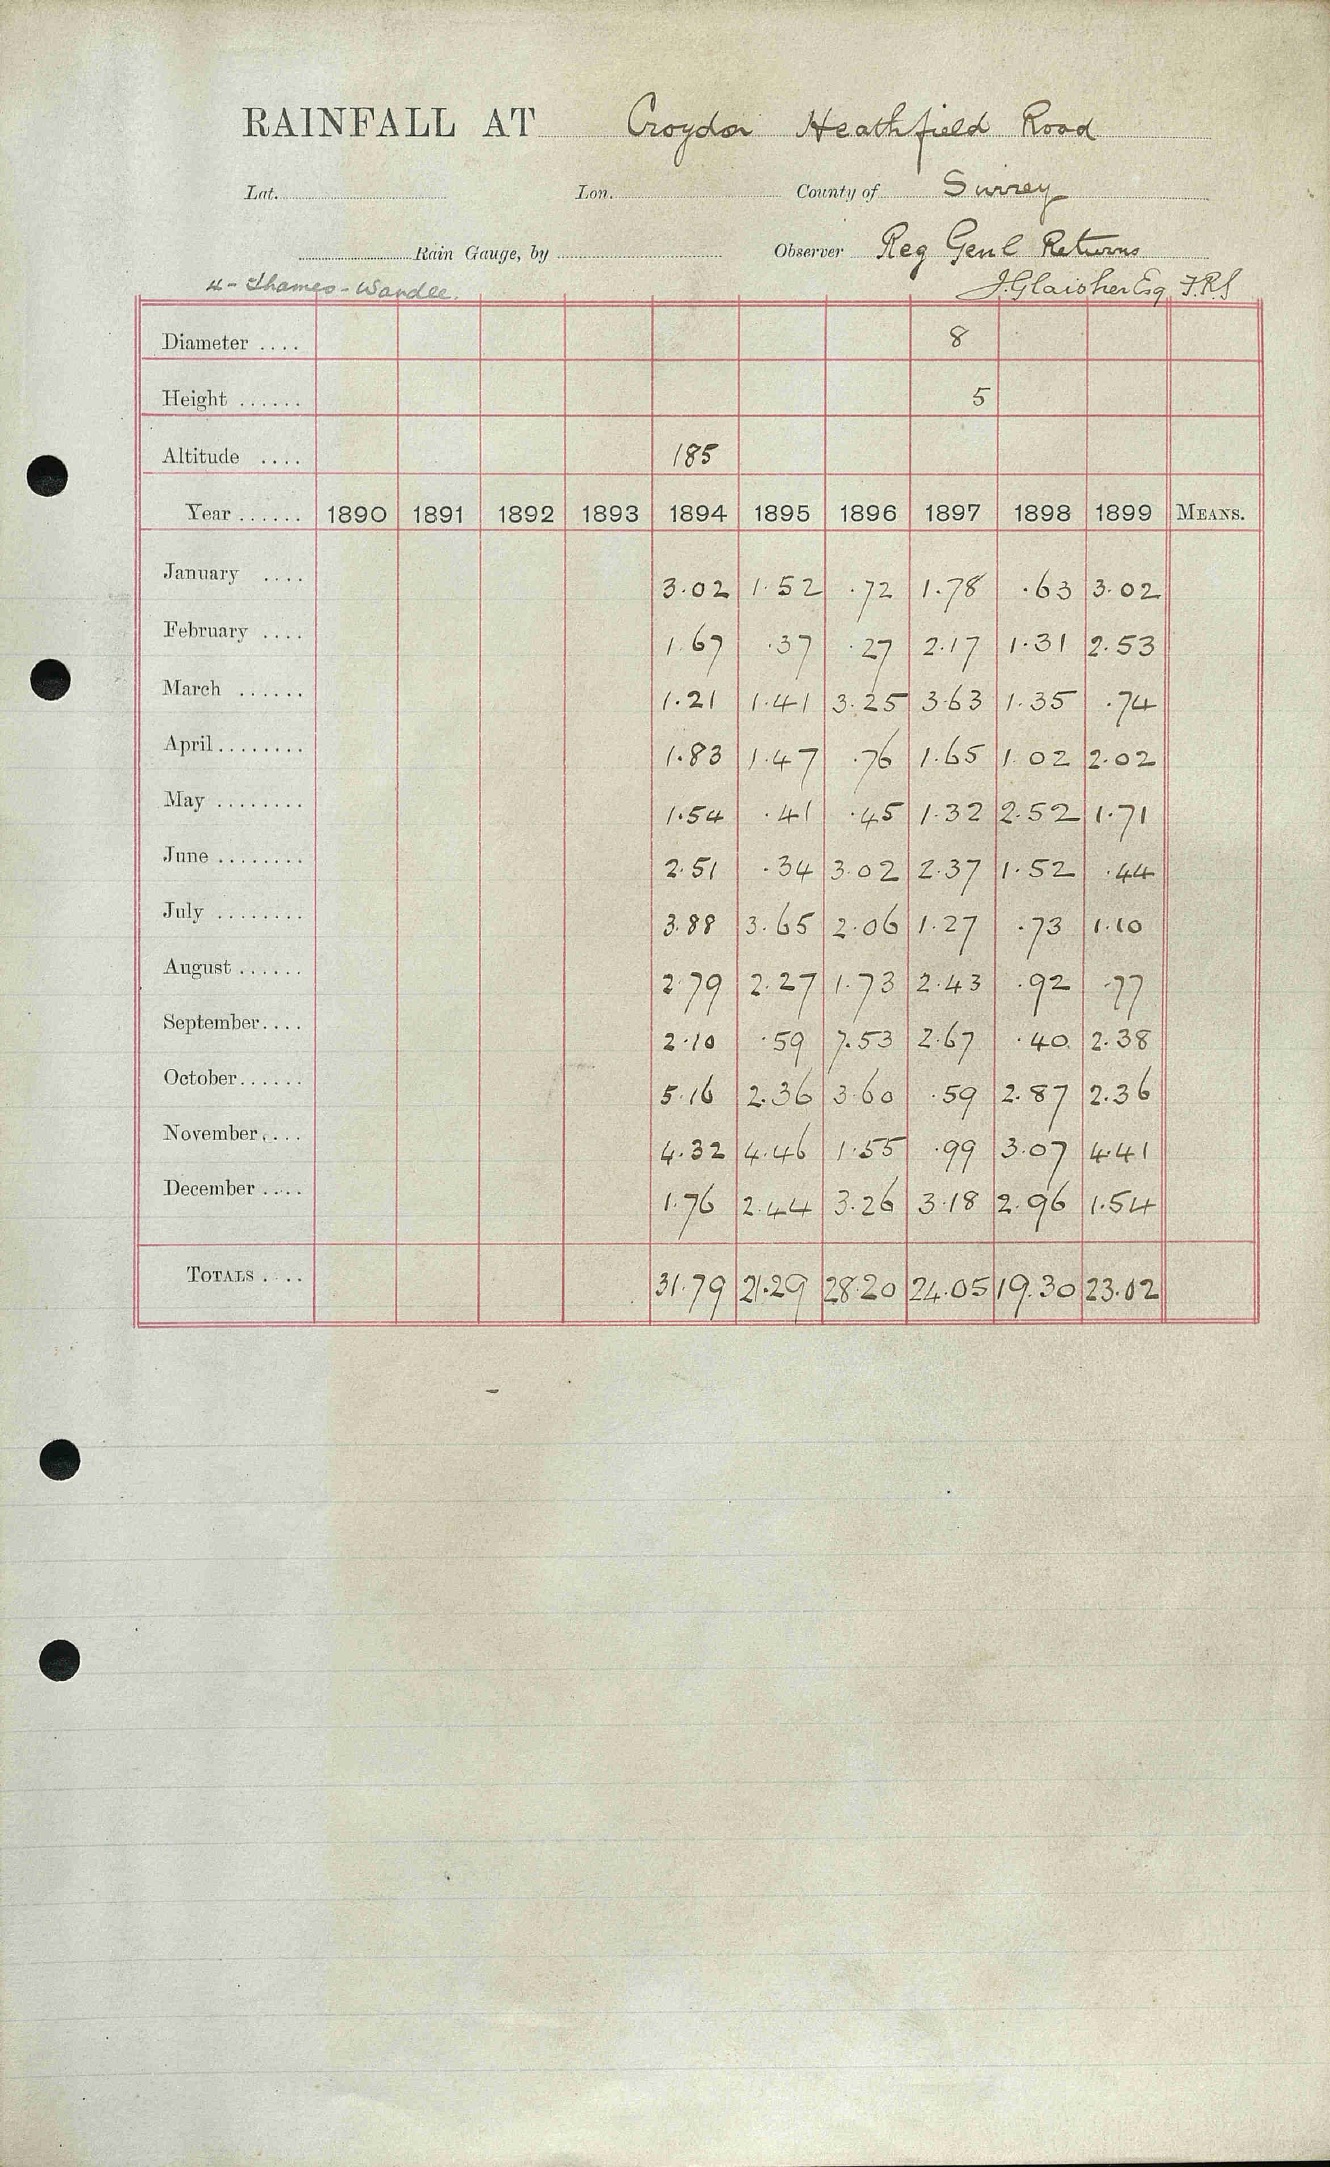 RAINFALL AT Croydon Heathfield Road
Lat. Lon. County of Surrey
Rain Gauge, by Observer Reg Genl Returns
4 - Thames - Wandle. J. Glaisher Esq F.R.S
Diameter .... 8
Height ...... 5
Altitude .... 185
Year ...... 1890 1891 1892 1893 1894 1895 1896 1897 1898 1899 MEANS.
January .... 3.02 1.52 .72 1.78 .63 3.02
February .... 1.67 .37 .27 2.17 1.31 2.53
March ...... 1.21 1.41 3.25 3.63 1.35 .74
April ........ 1.83 1.47 .76 1.65 1.02 2.02
May ........ 1.54 .41 .45 1.32 2.52 1.71
June ........ 2.51 .34 3.02 2.37 1.52 .44
July ........ 3.88 3.65 2.06 1.27 .73 1.10
August ...... 2.79 2.27 1.73 2.43 .92 .77
September.... 2.10 .59 7.53 2.67 .40 2.38
October...... 5.16 2.36 3.60 .59 2.87 2.36
November.... 4.32 4.46 1.55 .99 3.07 4.41
December .... 1.76 2.44 3.26 3.18 2.96 1.54
TOTALS .... 31.79 21.29 28.20 24.05 19.30 23.02